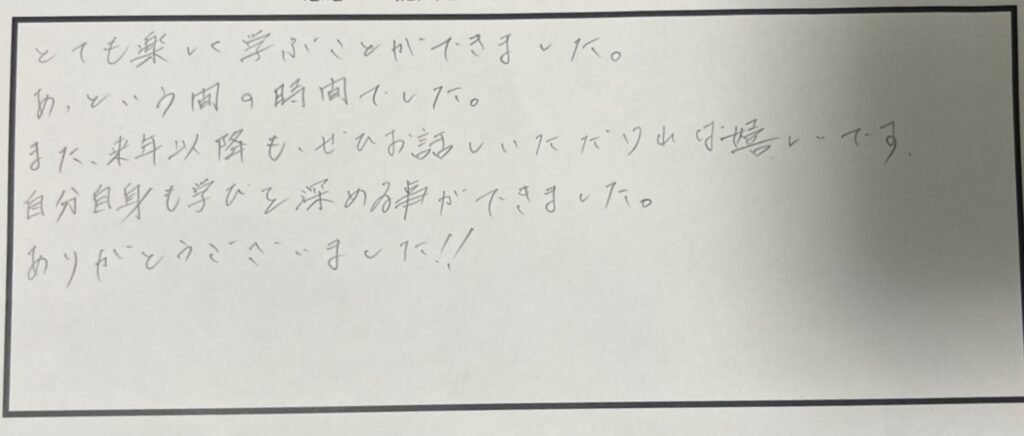 とても楽しく学ぶことができました。
あっという間の時間でした。
また、来年以降も、ぜひお話しいただければ嬉しいです。
自分自身も学びを深める事ができました。
ありがとうございました!!